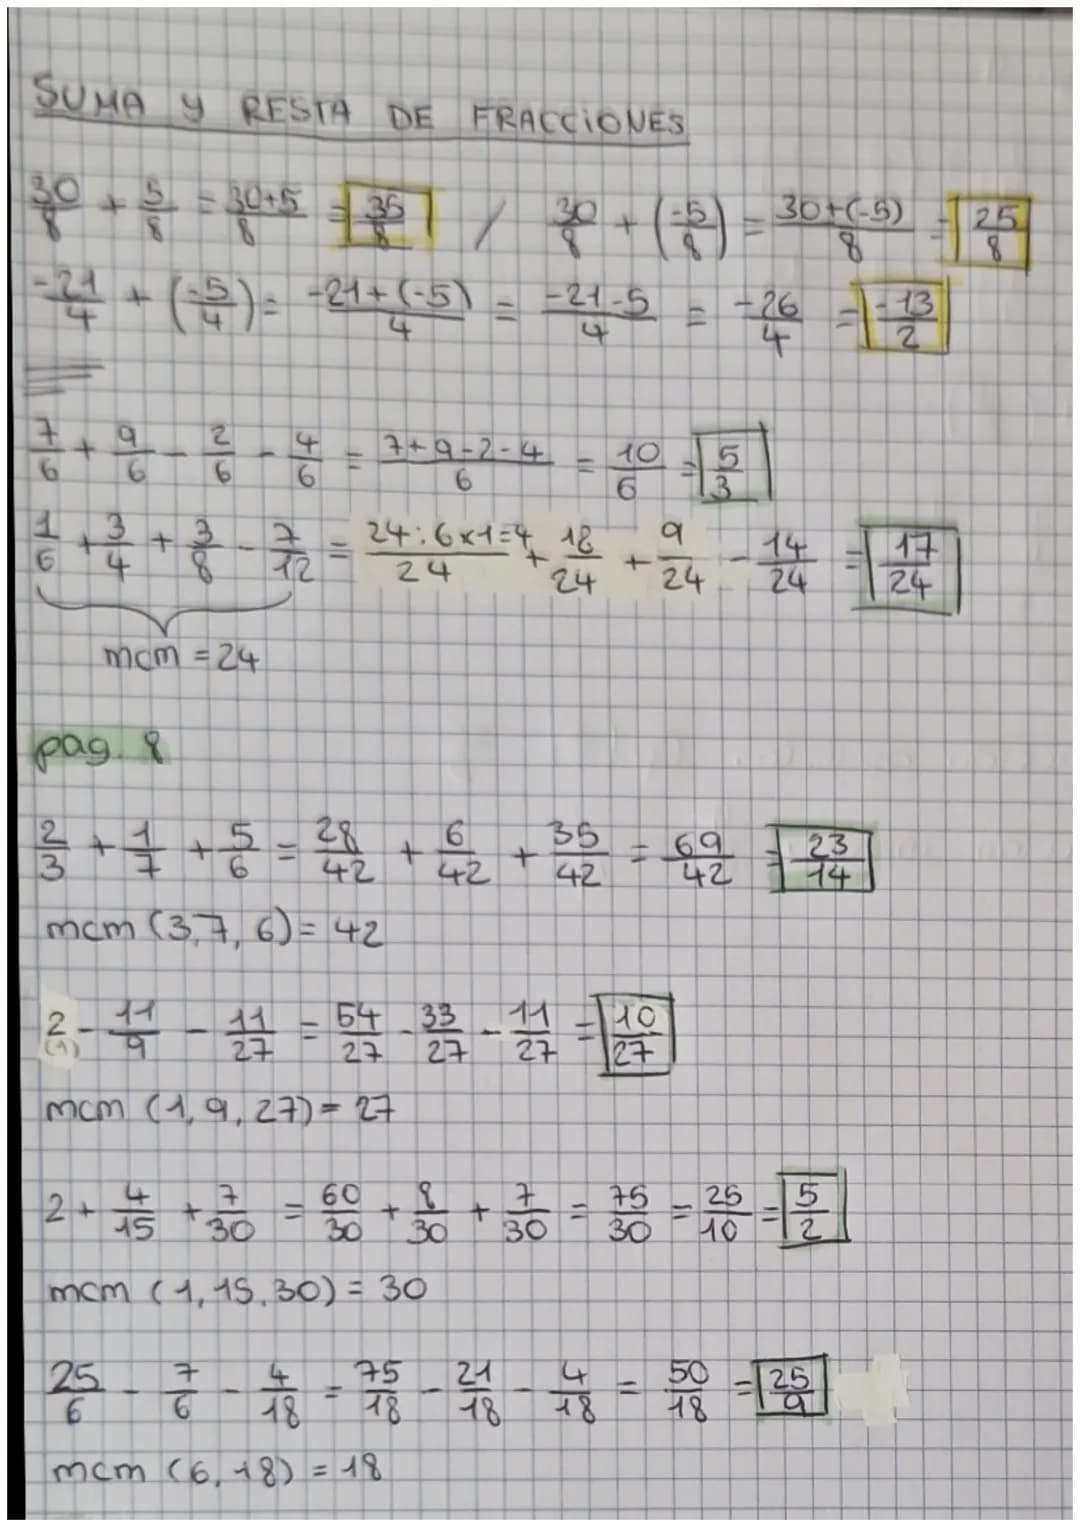 SUMA y RESTA DE FRACCIONES
30/8 + 5/8 = 30+5/8 = 35/8 / 30/8 + (-5/8) = 30+(-5)/8 = 25/8
-21/4 + (-5/4) = -21+(-5)/4 = -21-5/4 = -26/4 = -13/2
7/6 + 9/6 - 2/6 - 4/6 = 7+9-2-4/6 = 10/6 = 5/3
1/6 + 3/4 + 3/8 - 7/12 = 24:6x1=4/24 + 18/24 + 9/24 - 14/24 = 17/24
mcm = 24
pag. 8
2/3 + 1/7 + 5/6 = 28/42 + 6/42 + 35/42 = 69/42 = 23/14
mcm (3,7,6) = 42
2/(1) - 11/9 - 11/27 = 54/27 - 33/27 - 11/27 = 10/27
mcm (1,9,27) = 27
2 + 4/15 + 7/30 = 60/30 + 8/30 + 7/30 = 75/30 = 25/10 = 5/2
mcm (1,15,30) = 30
25/6 - 7/6 - 4/18 = 75/18 - 21/18 - 4/18 = 50/18 = 25/9
mcm (6,18) = 18